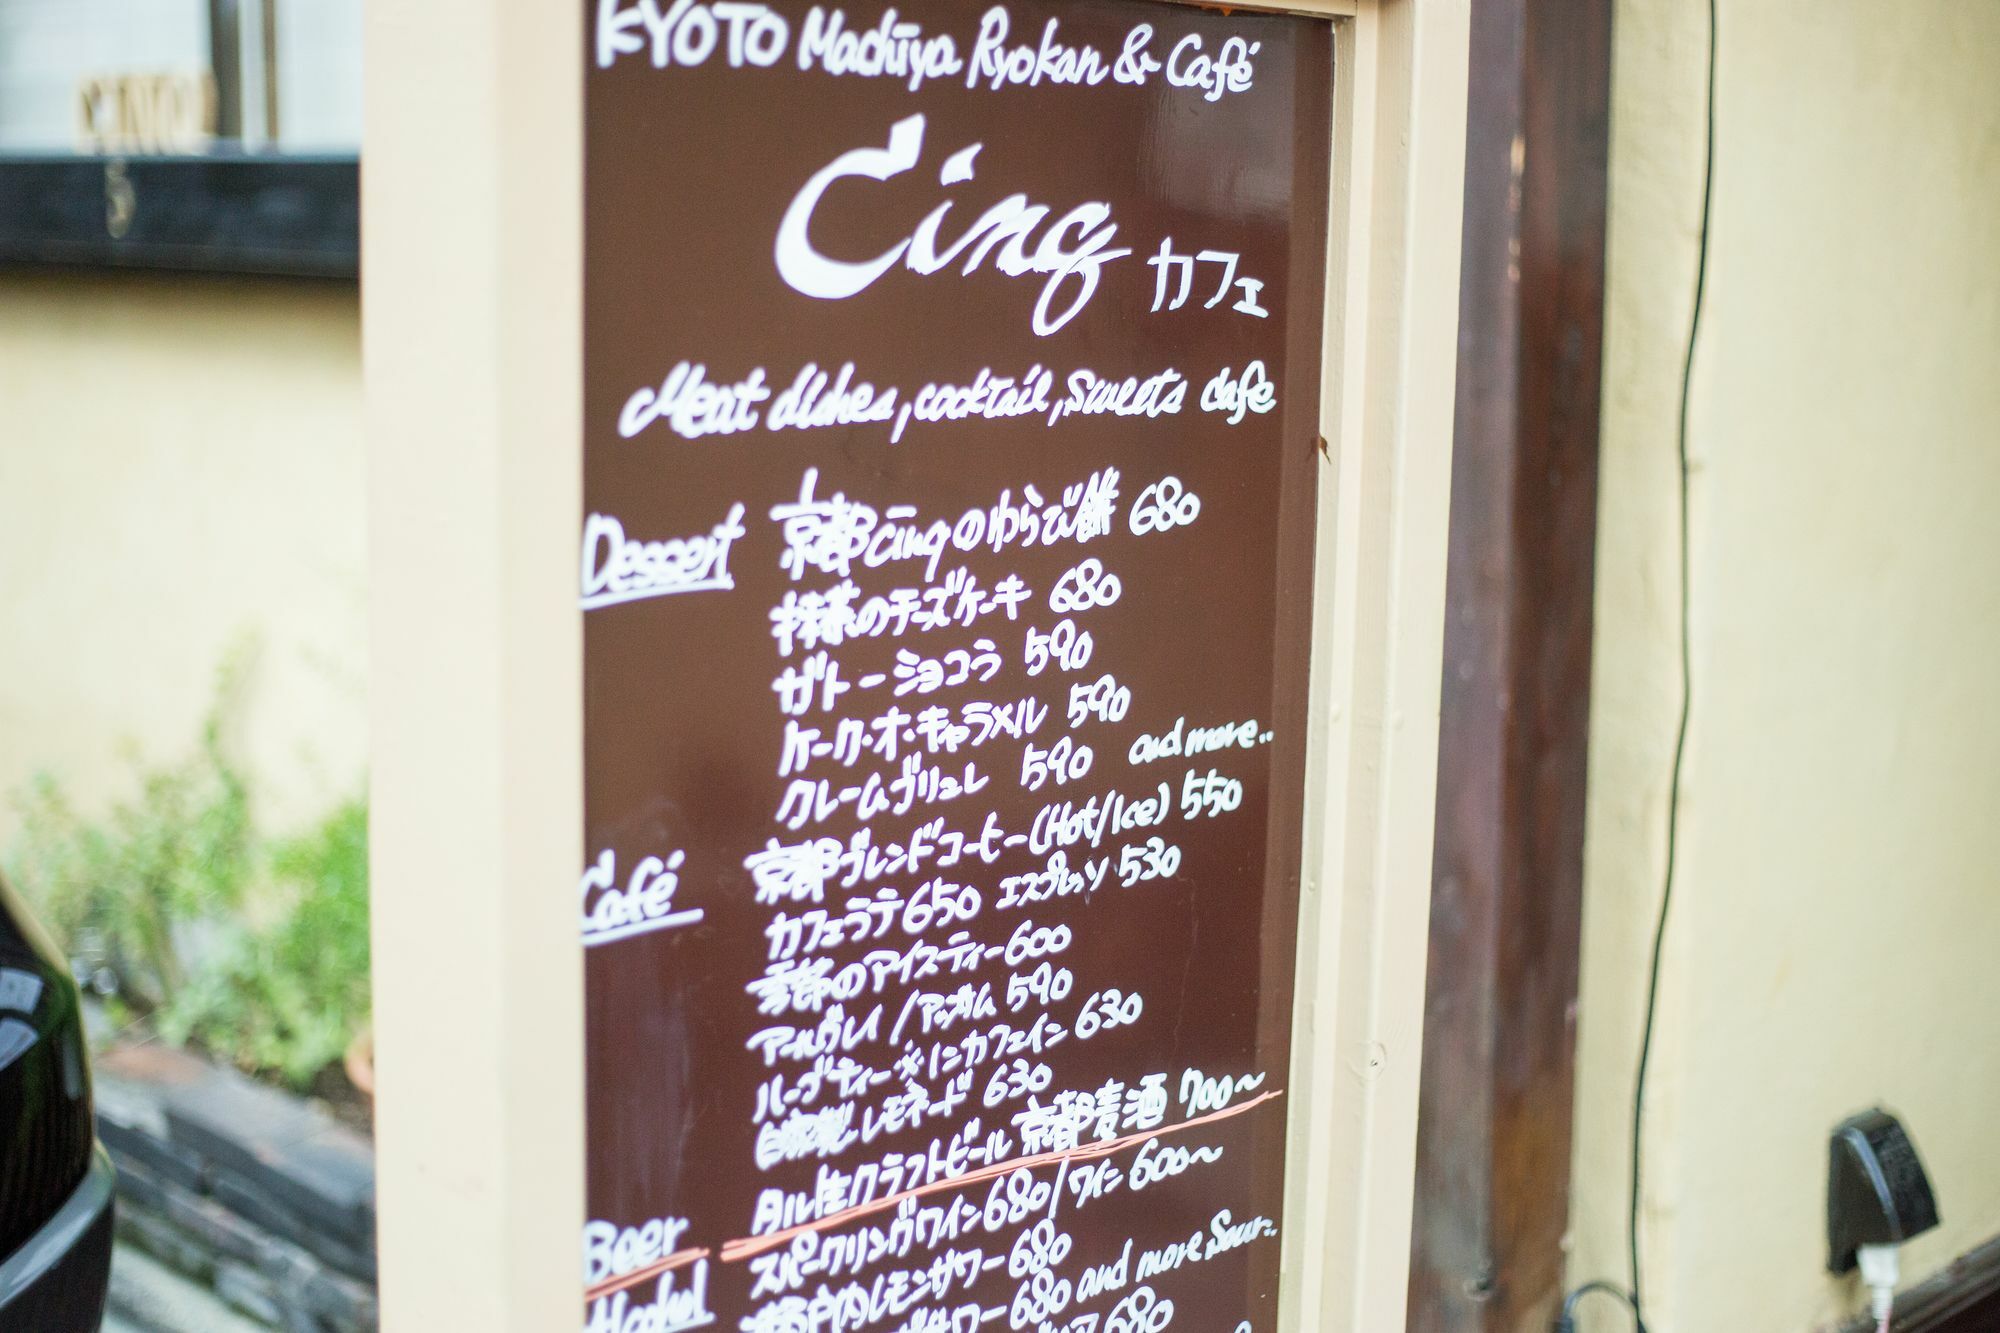 KYOTO Machiya Ryokan & Café
Cinq カフェ
Meat dishes, cocktail, Sweets cafe
Dessert 京都cinqのわらび餅 680
抹茶のチーズケーキ 680
ガトーショコラ 590
ケーク・オ・キャラメル 590
クレームブリュレ 590 and more..
Café 京都ブレンドコーヒー(Hot/Ice) 550
カフェラテ650 エスプレッソ 530
季節のアイスティー600
アールグレイ/アッサム 590
ハーブティー※ノンカフェイン 630
自家製レモネード 630
Beer タル生クラフトビール 京都麦酒 700〜
Alcohol スパークリングワイン680/ワイン 600〜
レモンサワー680
サワー680 and more Sour..
680